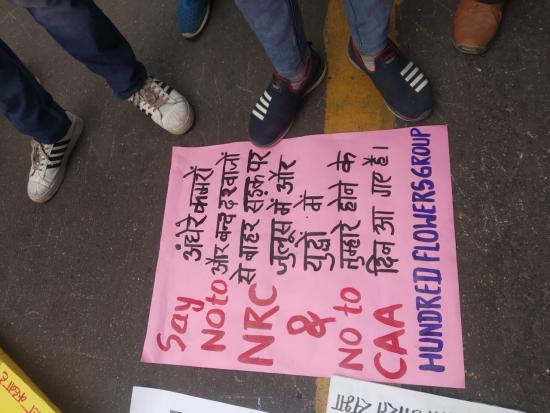 अंधेरे कमरों
और बन्द दरवाजों
से बाहर सड़क पर
जुलूस में और
युद्धों में
तुम्हारे होने के
दिन आ गए हैं।
Say
NO to
NRC
&
NO to
CAA
HUNDRED FLOWERS GROUP
भारत सभा